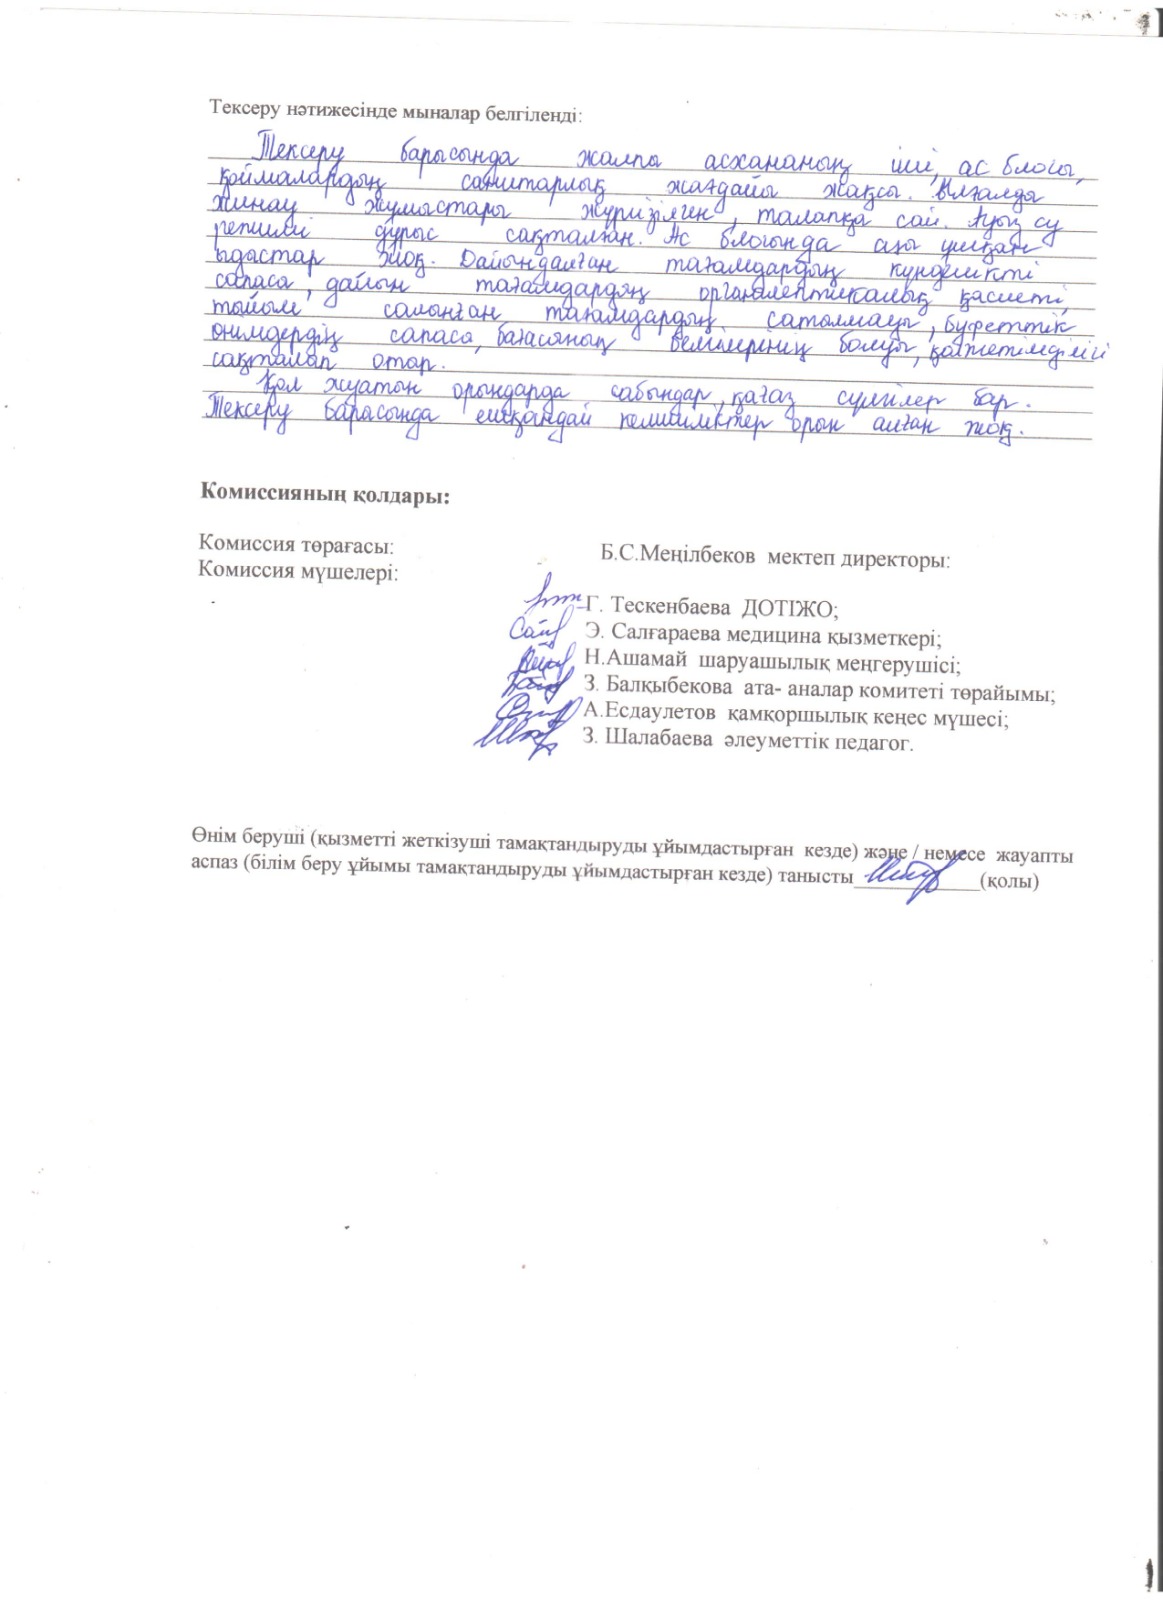 Тексеру нәтижесінде мыналар белгіленді:
Тексеру барысында жалпы асхананың іші, ас блогы,
қоймалардың санитарлық жағдайы жақсы. Ылғалды
жинау жұмыстары жүргізілген, талапқа сай. Ауыз су
режимі дұрыс сақталған. Ас блогында аузы ұшқан
ыдыстар жоқ. Дайындалған тағамдардың күнделікті
сапасы, дайын тағамдардың органолептикалық қасиеті,
тыйым салынған тағамдардың сатылмауы, буфеттік
өнімдердің сапасы, бағасының белгілерінің болуы, қолжетімділігі
сақталып отыр.
Қол жуатын орындарда сабындар, қағаз сүлгілер бар.
Тексеру барысында ешқандай кемшіліктер орын алған жоқ.
Комиссияның қолдары:
Комиссия төрағасы: Б.С.Меңілбеков мектеп директоры:
Комиссия мүшелері:
Г. Тескенбаева ДОТІЖО;
Э. Салғараева медицина қызметкері;
Н.Ашамай шаруашылық меңгерушісі;
З. Балқыбекова ата- аналар комитеті төрайымы;
А.Есдаулетов қамқоршылық кеңес мүшесі;
З. Шалабаева әлеуметтік педагог.
Өнім беруші (қызметті жеткізуші тамақтандыруды ұйымдастырған кезде) және / немесе жауапты
аспаз (білім беру ұйымы тамақтандыруды ұйымдастырған кезде) танысты____________(қолы)